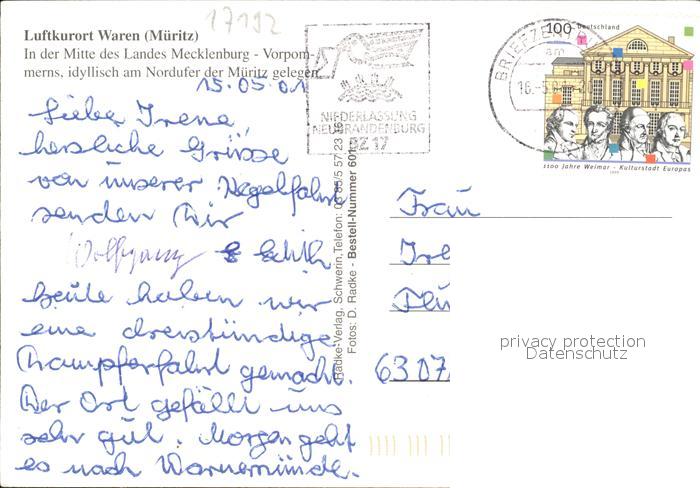 17192
Luftkurort Waren (Müritz)
In der Mitte des Landes Mecklenburg - Vorpom-
merns, idyllisch am Nordufer der Müritz gelegen.
15.05.01
Liebe Irene,
herzliche Grüsse
von unserer Kegelfahrt
senden Dir
Wolfgang & Edith
heute haben wir
eine dreistündige
Dampferfahrt gemacht.
Der Ort gefällt uns
sehr gut. Morgen geht
es nach Warnemünde.
Radke-Verlag, Schwerin, Telefon: 03 85/5 57 23
Fotos: D. Radke - Bestell-Nummer 601
NIEDERLASSUNG
NEUBRANDENBURG
BZ 17
BRIEFZENTRUM
16.-5.
100 Deutschland
1100 Jahre Weimar - Kulturstadt Europas
1999
Frau
Ire
6307
privacy protection
Datenschutz